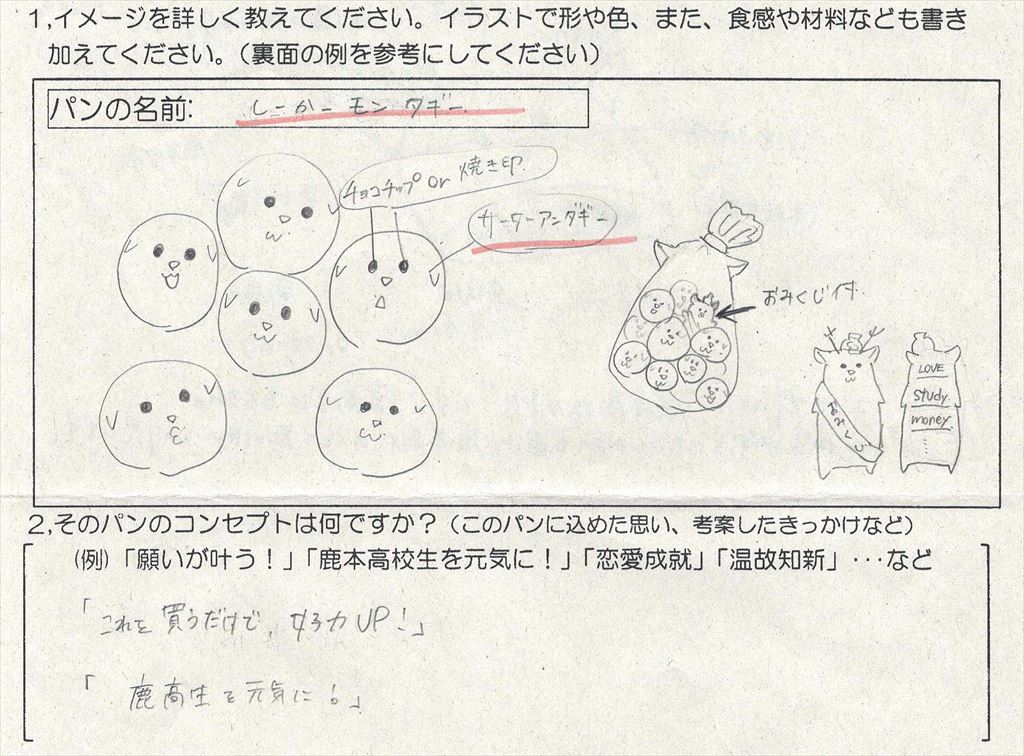 1,イメージを詳しく教えてください。イラストで形や色、また、食感や材料なども書き
加えてください。（裏面の例を参考にしてください）
パンの名前: しーかーモンタギー
チョコチップ or 焼き印
サーターアンダギー
おみくじ付
おみくじ
LOVE
study
money
2,そのパンのコンセプトは何ですか？（このパンに込めた思い、考案したきっかけなど）
(例)「願いが叶う！」「鹿本高校生を元気に！」「恋愛成就」「温故知新」･･･など
「これを買うだけで、女子力UP!」
「鹿高生を元気に!」